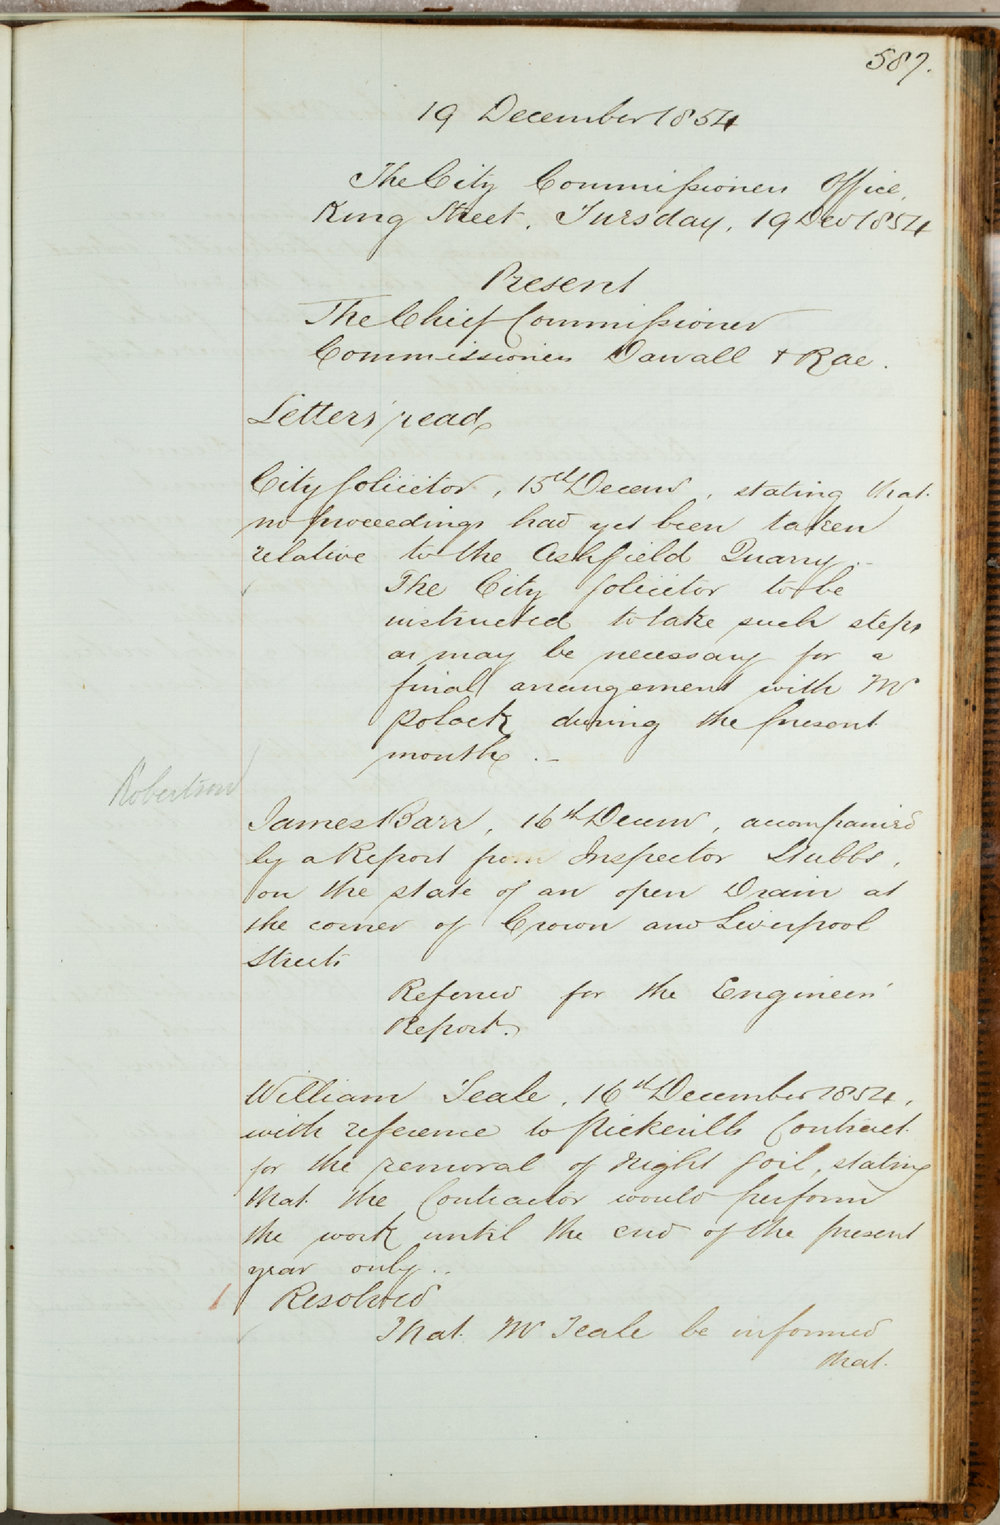 587.
19 December 1854
The City Commissioners Office,
King Street, Tuesday, 19 Decr 1854
Present
The Chief Commissioner
Commissioners Darvall & Rae.
Letters read
City Solicitor, 15th Decemr, stating that
no proceedings had yet been taken
relative to the Ashfield Quarry.-
The City Solicitor to be
instructed to take such steps
as may be necessary for a
final arrangement with Mr
Polack during the present
month.-
Robertson
James Barr, 16th Decemr, accompanied
by a Report from Inspector Stubbs,
on the state of an open Drain at
the corner of Crown and Liverpool
Streets
Referred for the Engineers'
Report.
William Teale, 16th December 1854,
with reference to Pickerills Contract
for the removal of Night Soil, stating
that the Contractor would perform
the work until the end of the present
year only..
1 Resolved
That Mr Teale be informed
that